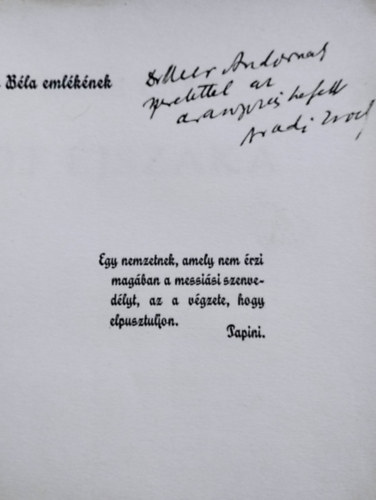 Béla emlékének
Dr Meer Andornak
szeretettel az
Aradi
Egy nemzetnek, amely nem érzi
magában a messiási szenve-
délyt, az a végzete, hogy
elpusztuljon.
Papini.